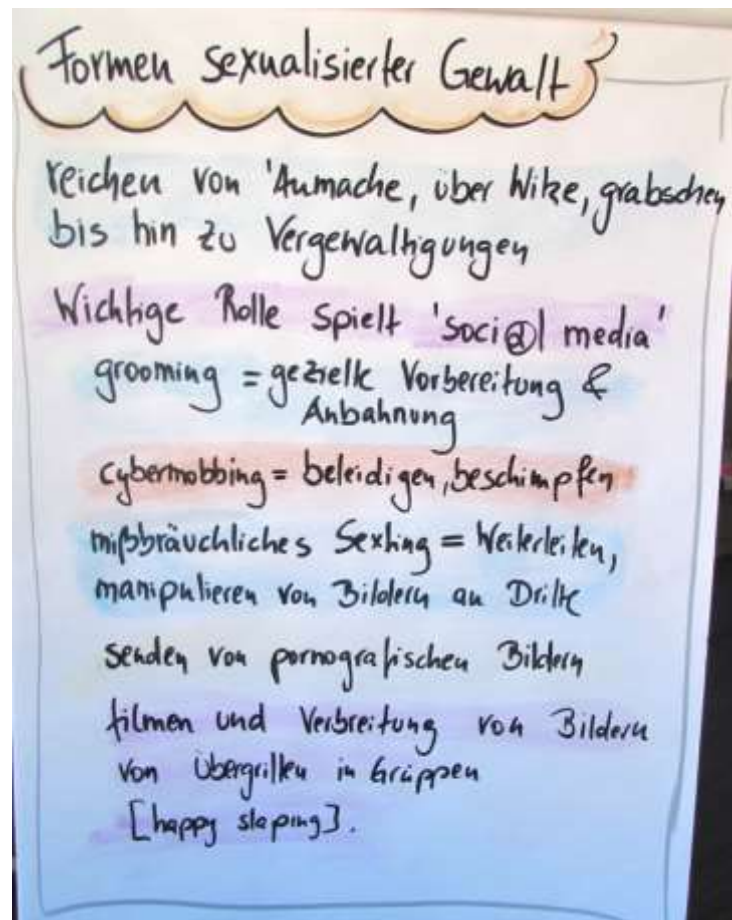 Formen sexualisierter Gewalt
reichen von 'Anmache, über Witze, grabschen
bis hin zu Vergewaltigungen
Wichtige Rolle spielt 'soci@l media'
grooming = gezielte Vorbereitung &
Anbahnung
cybermobbing = beleidigen, beschimpfen
mißbräuchliches Sexting = Weiterleiten,
manipulieren von Bildern an Dritte
senden von pornografischen Bildern
filmen und Verbreitung von Bildern
von Übergriffen in Gruppen
[happy slaping].